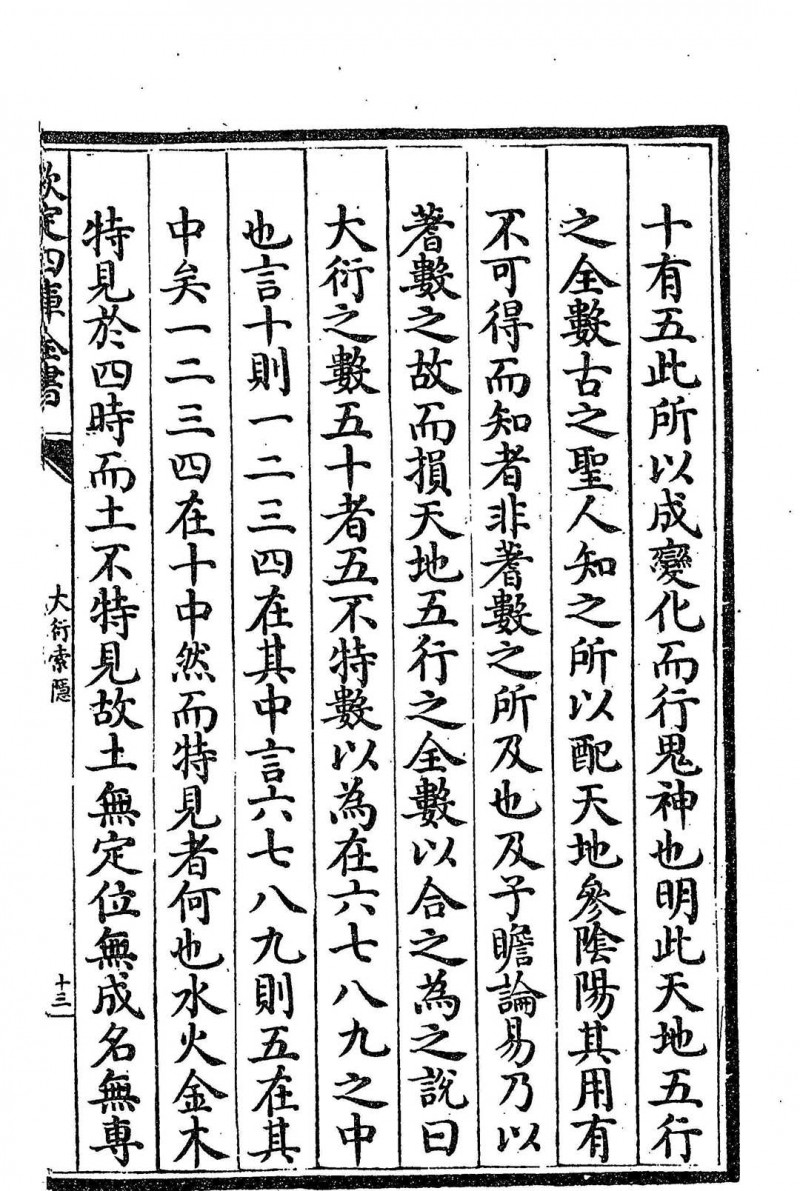 十有五此所以成變化而行鬼神也明此天地五行
之全數古之聖人知之所以配天地參陰陽其用有
不可得而知者非蓍數之所及也及子瞻論易乃以
蓍數之故而損天地五行之全數以合之為之說曰
大衍之數五十者五不特數以為在六七八九之中
也言十則一二三四在其中言六七八九則五在其
中矣一二三四在十中然而特見者何也水火金木
特見於四時而土不特見故土無定位無成名無專
欽定四庫全書
大衍索隱
十三